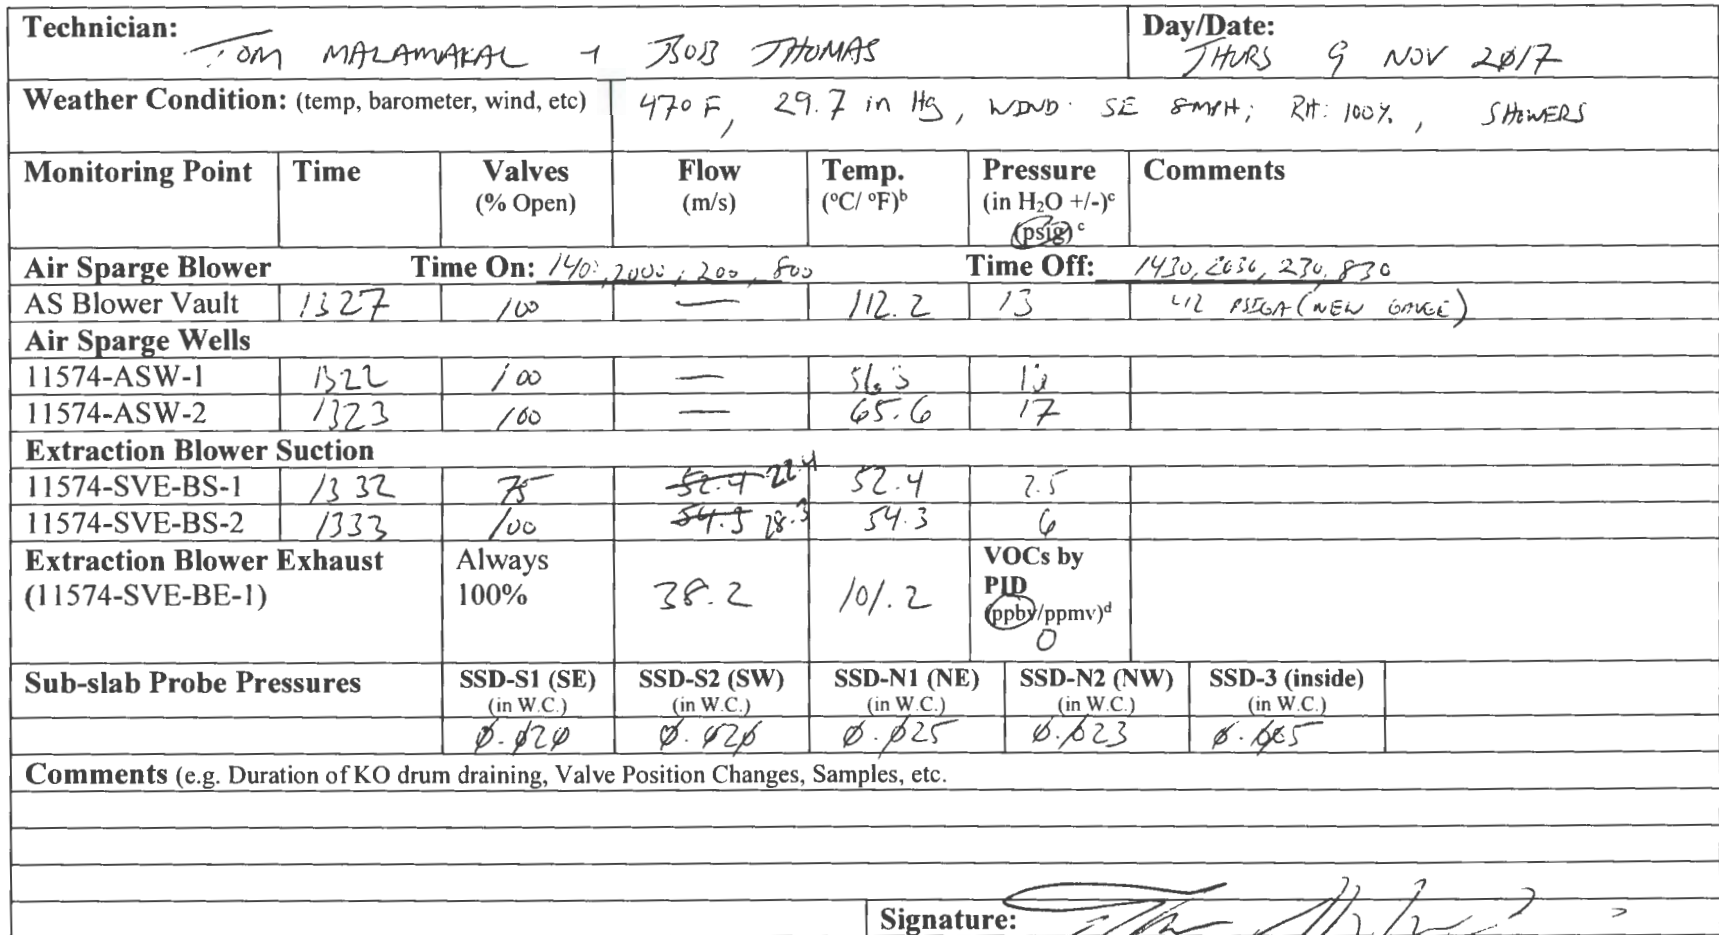 Technician: TOM MALAMAKAL + BOB THOMAS Day/Date: THURS 9 NOV 2017
Weather Condition: (temp, barometer, wind, etc) 47º F, 29.7 in Hg, WIND: SE 8MPH; RH: 100%, SHOWERS
Monitoring Point Time Valves Flow Temp. Pressure Comments
(% Open) (m/s) (°C/ °F)b (in H₂O +/-)c
(psig) c
Air Sparge Blower Time On: 2000, 200, 800 Time Off: 1430, 2030, 230, 830
AS Blower Vault 1327 100 — 112.2 13 (NEW GAUGE)
Air Sparge Wells
11574-ASW-1 1322 100 —
11574-ASW-2 1323 100 — 65.6 17
Extraction Blower Suction
11574-SVE-BS-1 1332 75 52.4 22.4 52.4 2.5
11574-SVE-BS-2 1333 100 54.3 28.3 54.3 6
Extraction Blower Exhaust Always VOCs by
(11574-SVE-BE-1) 100% 38.2 101.2 PID
(ppbv/ppmv)d
0
Sub-slab Probe Pressures SSD-S1 (SE) SSD-S2 (SW) SSD-N1 (NE) SSD-N2 (NW) SSD-3 (inside)
(in W.C.) (in W.C.) (in W.C.) (in W.C.) (in W.C.)
0.020 0.020 0.025 0.023 0.005
Comments (e.g. Duration of KO drum draining, Valve Position Changes, Samples, etc.
Signature: